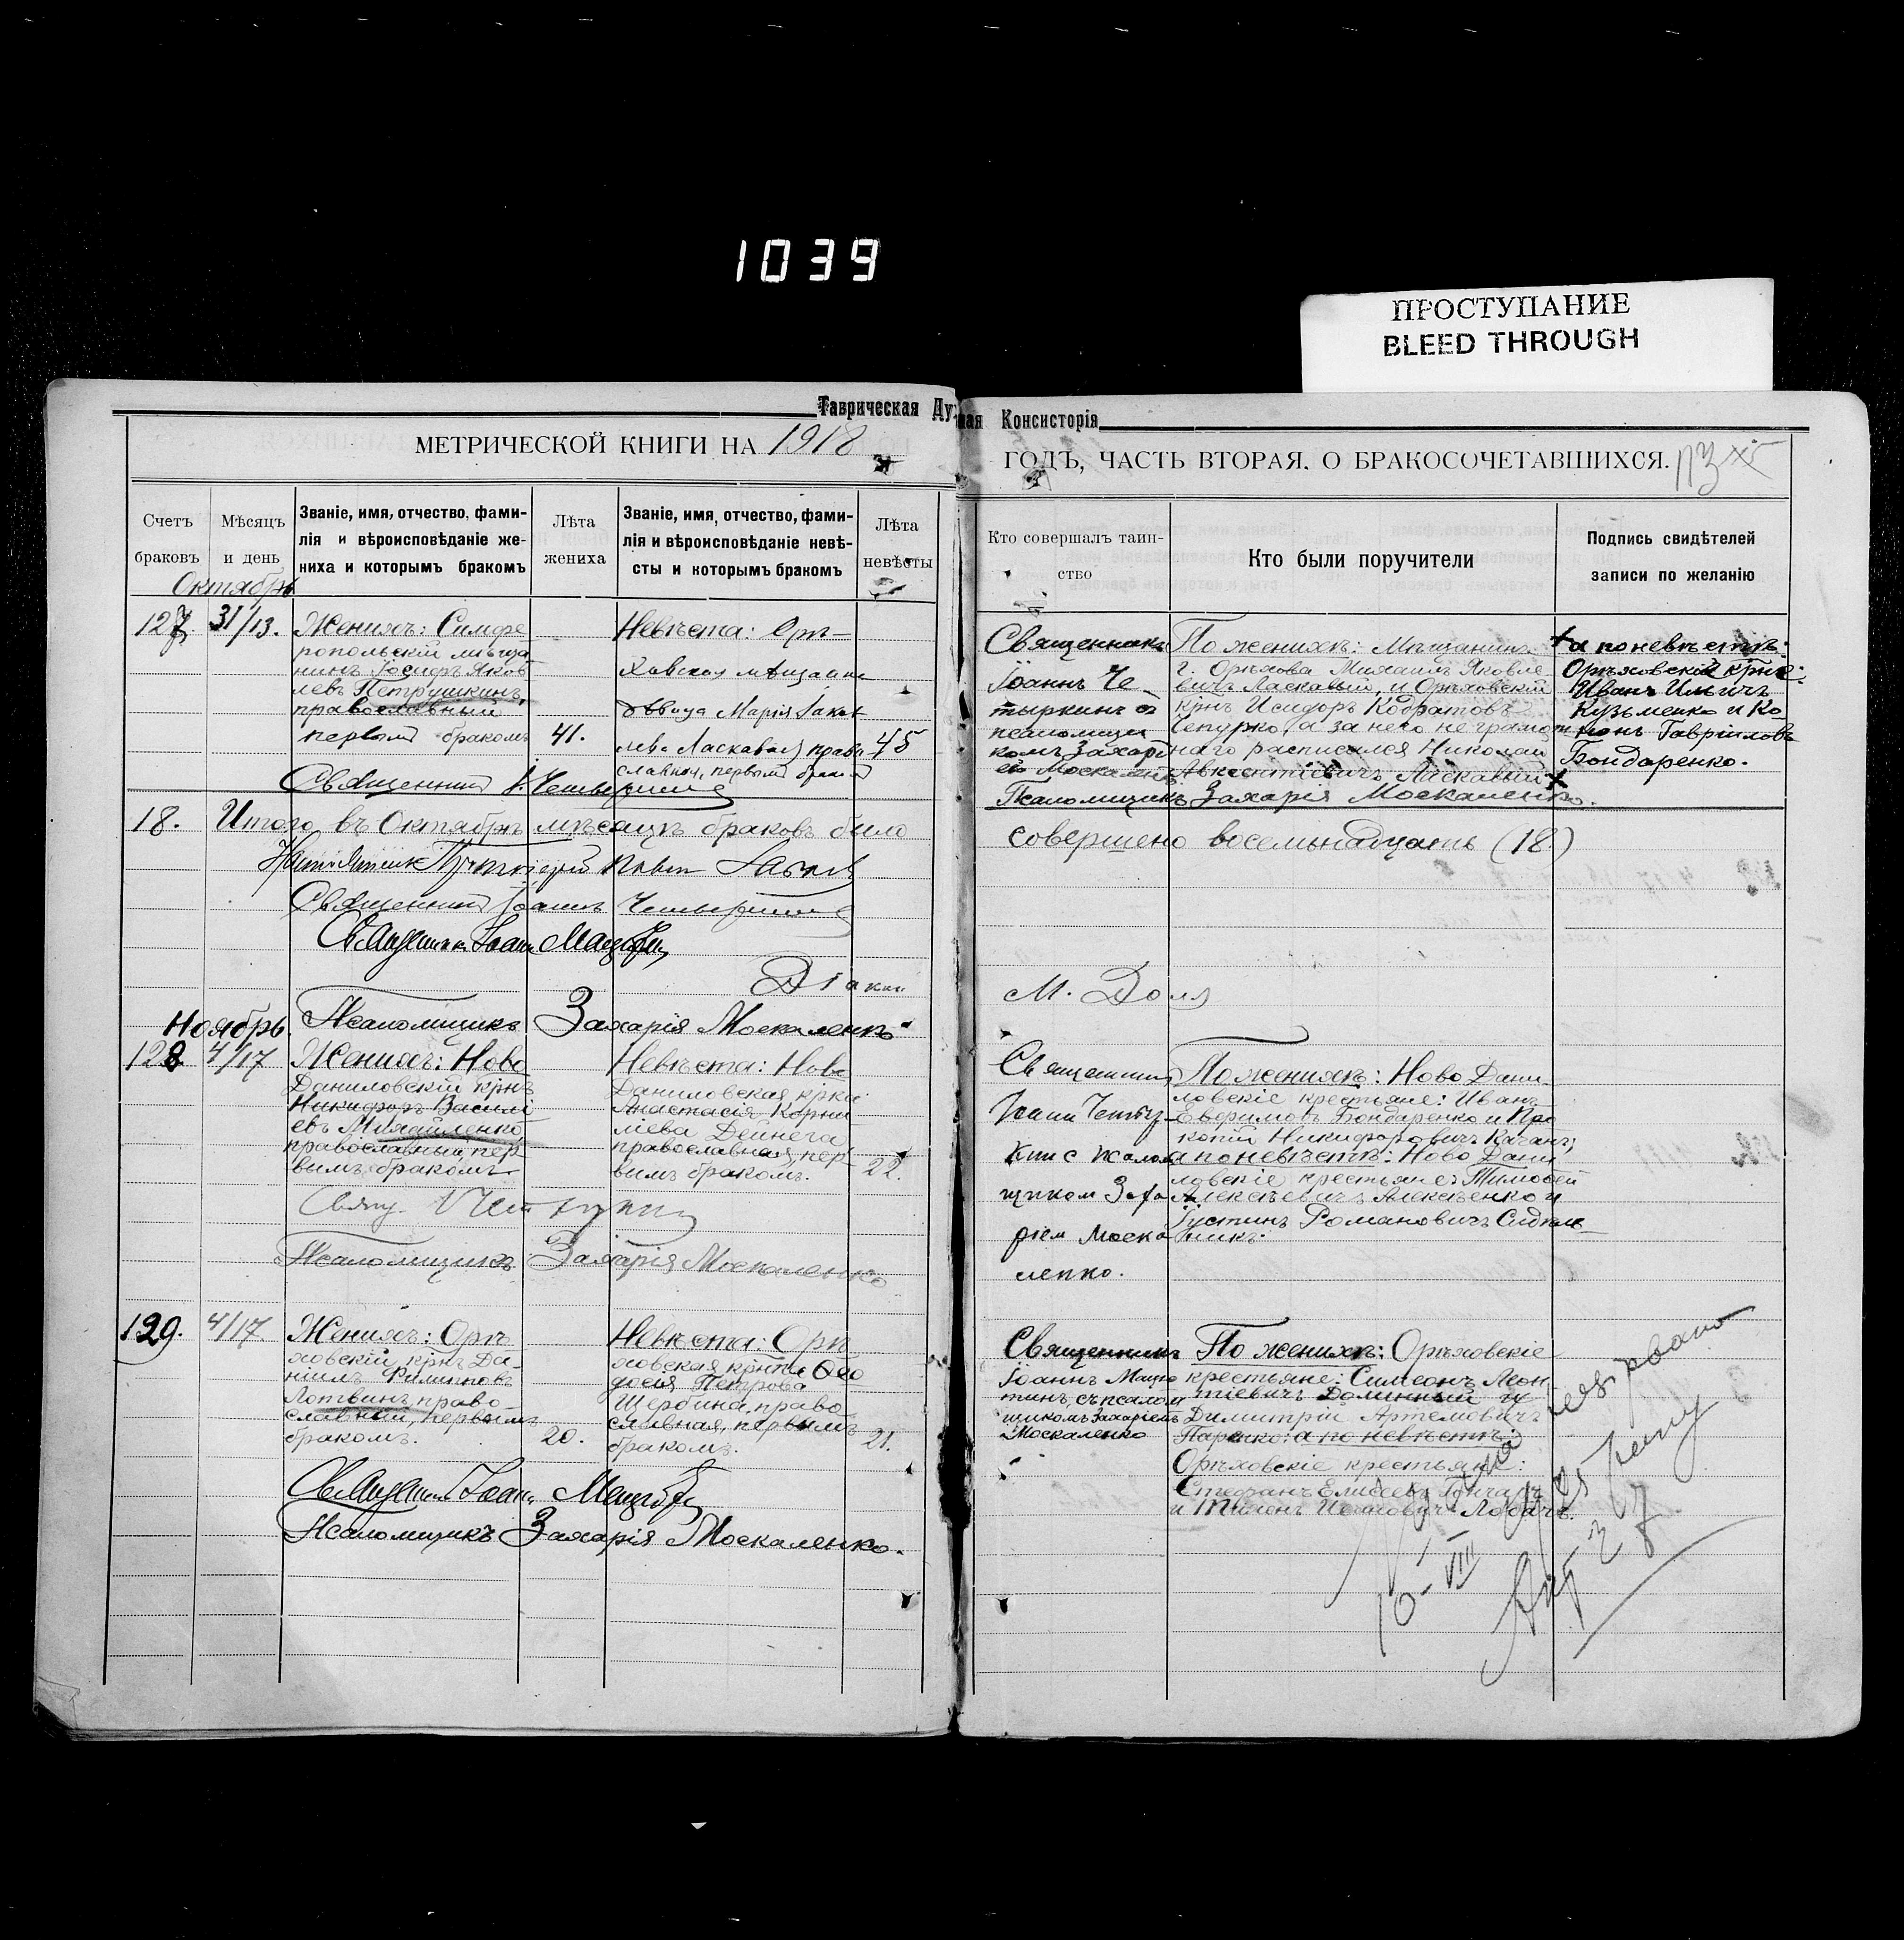 1039
ПРОСТУПАНИЕ
BLEED THROUGH
Таврическая Духовная Консисторія
МЕТРИЧЕСКОЙ КНИГИ НА 1918
ГОДЪ, ЧАСТЬ ВТОРАЯ, О БРАКОСОЧЕТАВШИХСЯ.
Счетъ
браковъ
Мѣсяцъ
и день
Званіе, имя, отчество, фами-
лія и вѣроисповѣданіе же-
ниха и которымъ бракомъ
Лѣта
жениха
Званіе, имя, отчество, фами-
лія и вѣроисповѣданіе невѣ-
сты и которымъ бракомъ
Лѣта
невѣсты
Кто совершалъ таин-
ство
Кто были поручители
Подпись свидѣтелей
записи по желанію
Октябрь
127. 31/13.
Женихъ: Симфе
ропольскій мѣща
нинъ Іосифъ Яков
левъ Петрушкинъ,
православный
первым бракомъ
41.
Невѣста: Орѣ-
ховская мѣщанка
дѣвица Марія Іаков
лева Ласкавая право
славная, первым браком
45
Священникъ
Іоаннъ Че
тыркинъ съ
псаломщи
комъ Захарі
емъ Москаленко
По женихѣ: Мѣщанинъ
г. Орѣхова Михаилъ Яковле
вичъ Ласкавый, и Орѣховскій
крнъ Исидоръ Кодратовъ
Чепурко, а за него негра­мот
наго расписался Николай
Авксентіевичъ Ласкавый
+ а по невѣстѣ:
Орѣховскій крне:
Иванъ Ильичъ
Кузьменко и Ко
Гавріиловъ
Бондаренко.
Священник
Псаломщикъ Захарія Москаленко.
18. Итого въ Октябрѣ мѣсяцѣ браковъ было
совершено восемьнадцать (18)
Священник Іоаннъ
Священник Іоанн
Діакон
М. Доля
Псаломщикъ Захарія Москаленко
Ноябрь.
128 4/17
Женихъ: Ново
Даниловскій крнъ
Никифоръ Василі
евъ Михайленко
православный, пер
вымъ бракомъ
Невѣста: Ново
Даниловская крка
Анастасія Корни
ліева Дейнега
православная, пер
вымъ бракомъ.
22.
Священник
Іоанн
щиком Заха
ріем Моска
ленко.
По женихѣ: Ново Дани
ловскіе крестьяне: Иванъ
Ефимовъ Бондаренко и Про
копій Никифоровичъ Качанъ;
а по невѣстѣ: Ново Дани
ловскіе крестьяне: Тимофей
Алексѣевичъ Алексѣенко и
Іустинъ Романовичъ Сидель
никъ.
Псаломщикъ Захарія Москаленко
129. 4/17
Женихъ: Орѣ
ховскій крнъ Да-
ніилъ Филипповъ
Лотвинъ, право-
славный, первымъ
бракомъ.
20.
Невѣста: Орѣ
ховская крнка Ѳео
досія Петрова
Щербина, право
славная, первымъ
бракомъ.
21.
Священникъ
Іоаннъ Мацко
тинъ, съ псалом
щикомъ Захаріемъ
Москаленко
По женихѣ: Орѣховскіе
крестьяне: Симеонъ Леон
тіевичъ Долинный и
Димитрій Артемовичъ
Паренко: а по невѣстѣ:
Орѣховскіе крестьяне:
Стефанъ Елисеевъ Гончаръ
и Тихонъ Лобачъ.
Священник Іоанн
Псаломщикъ Захарія Москаленко.
10-VIII